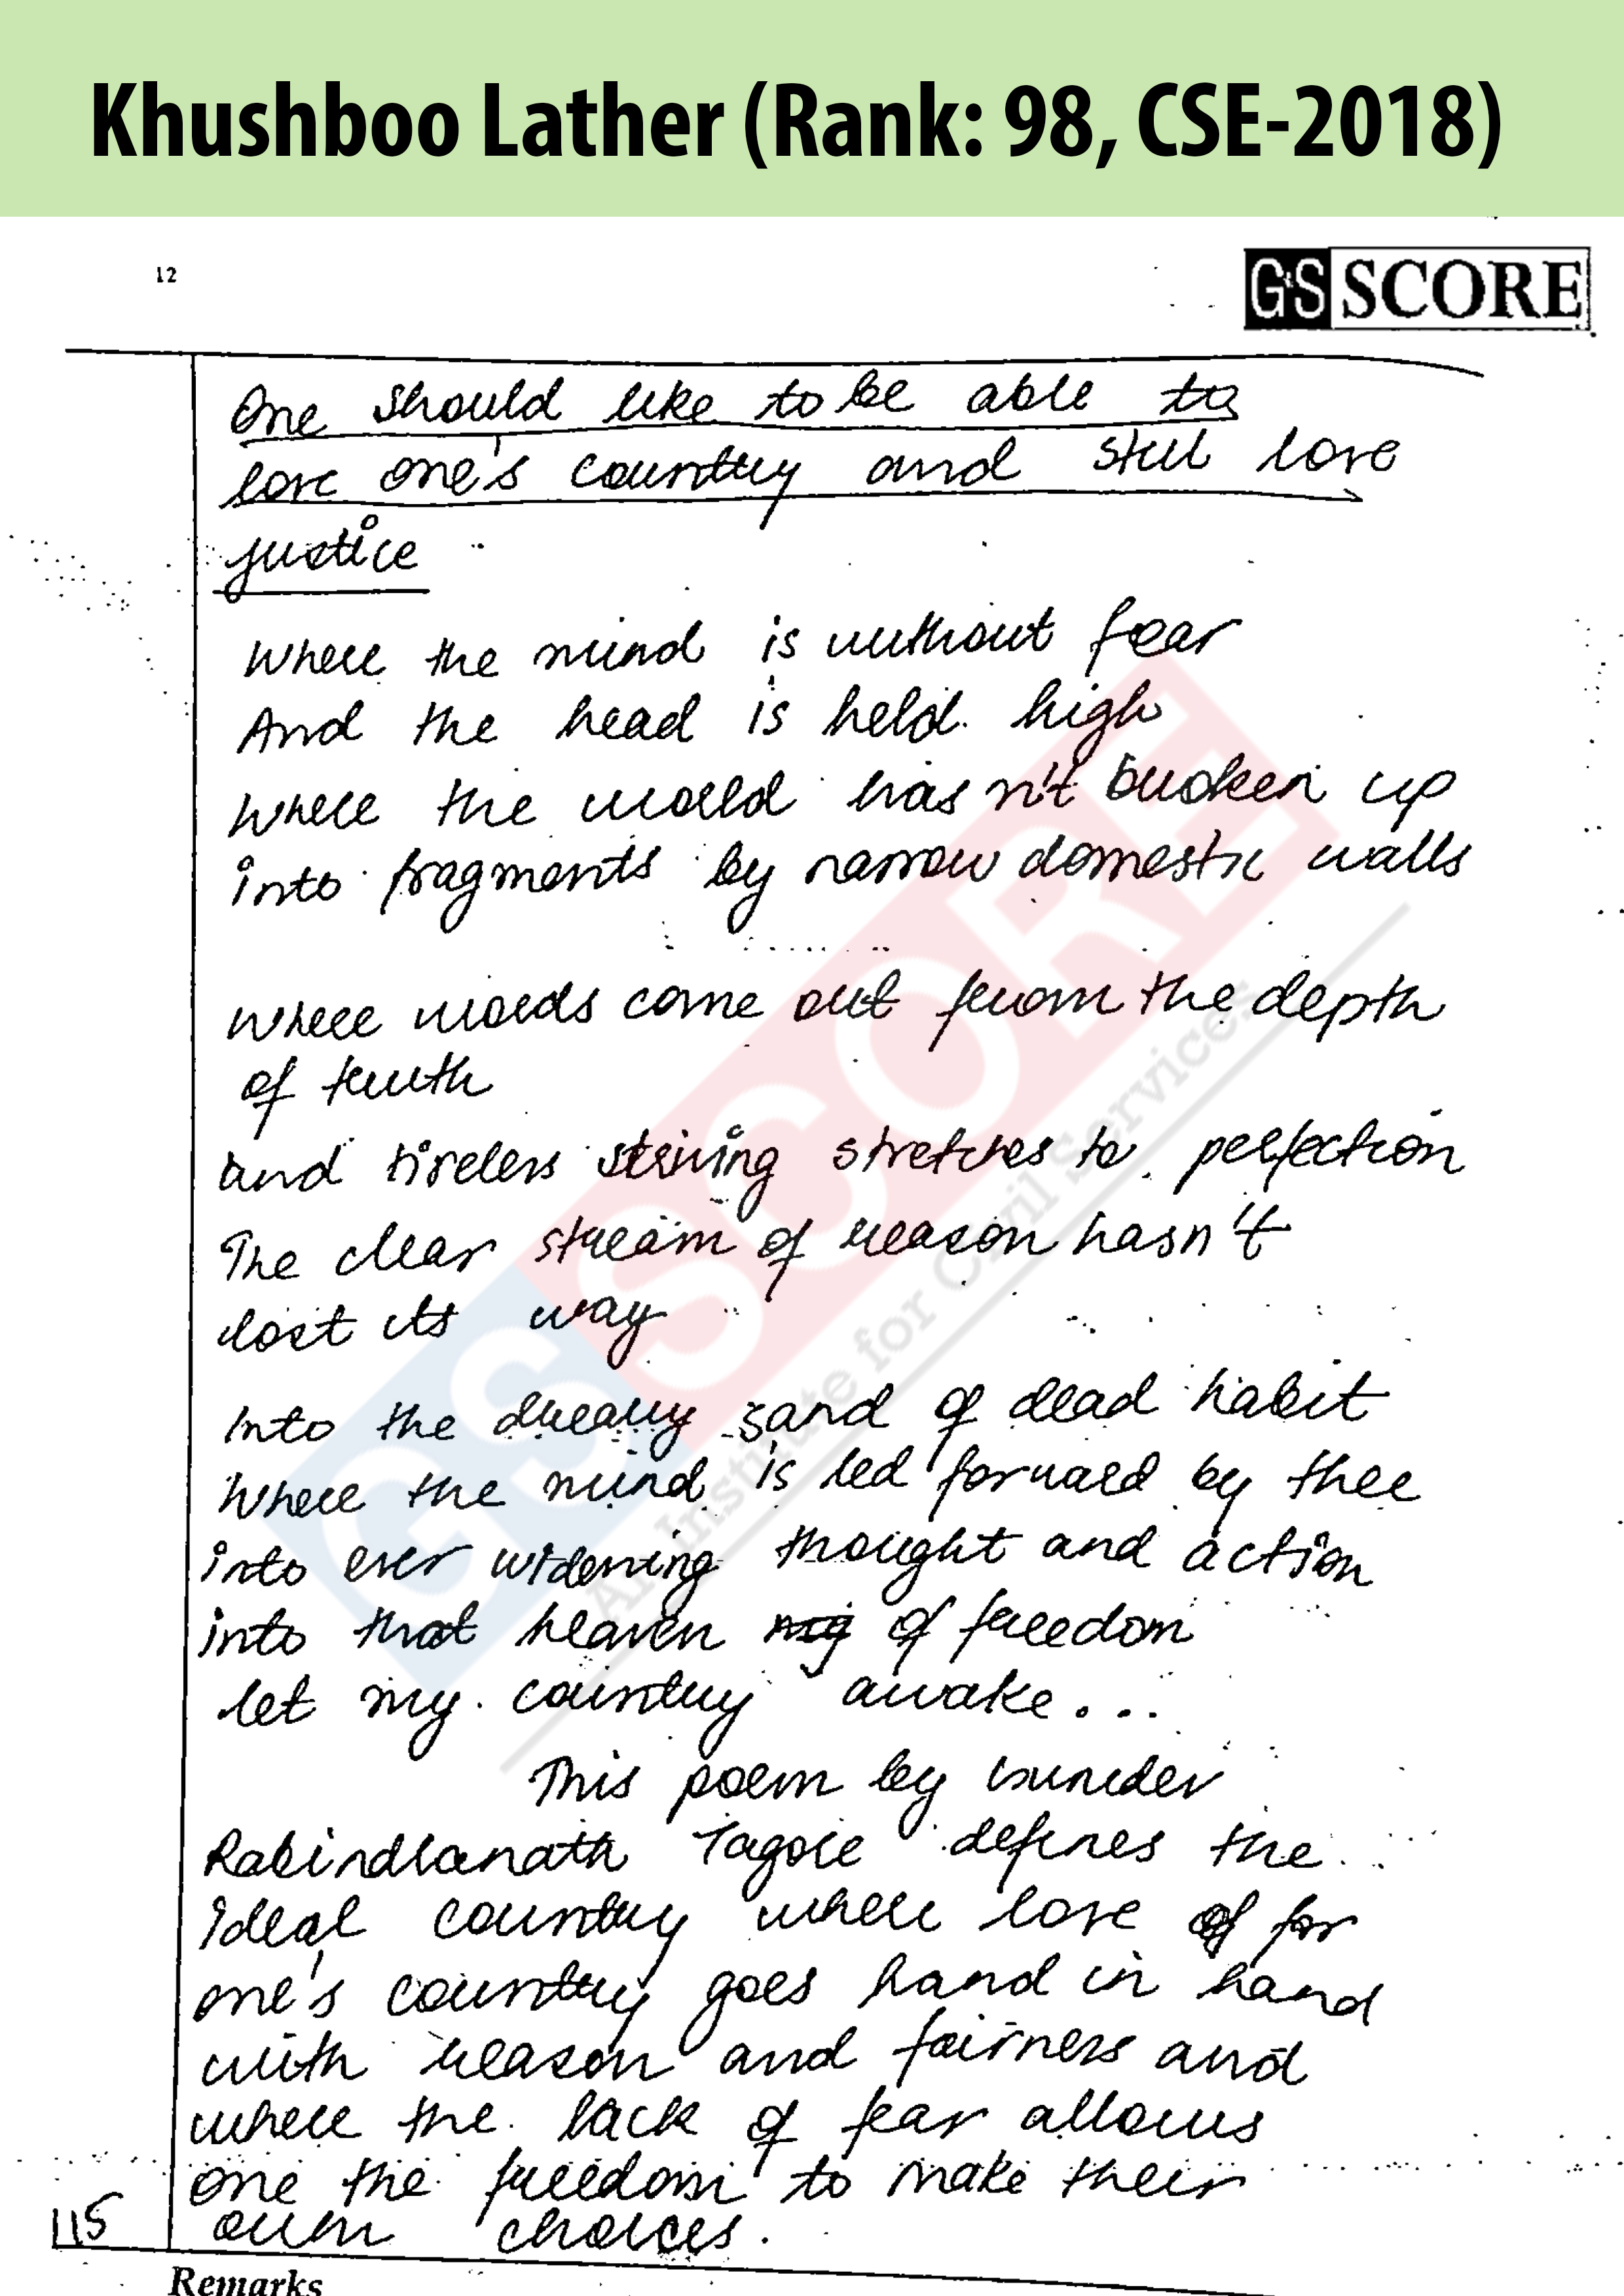 Khushboo Lather (Rank: 98, CSE-2018)
12
GS SCORE
One should like to be able to
love one's country and still love
justice
Where the mind is without fear
And the head is held high
Where the world hasn't broken up
into fragments by narrow domestic walls
where words come out from the depth
of truth
and tireless striving stretches to perfection
The clear stream of reason hasn't
lost its way
Into the dreary sand of dead habit
Where the mind is led forward by thee
into ever widening thought and action
into that heaven of freedom
let my country awake...
This poem by
Rabindranath Tagore defines the
ideal country where love for
one's country goes hand in hand
with reason and fairness and
where the lack of fear allows
one the freedom to make their
115
own choices.
Remarks
GS SCORE
An Institute for Civil Services